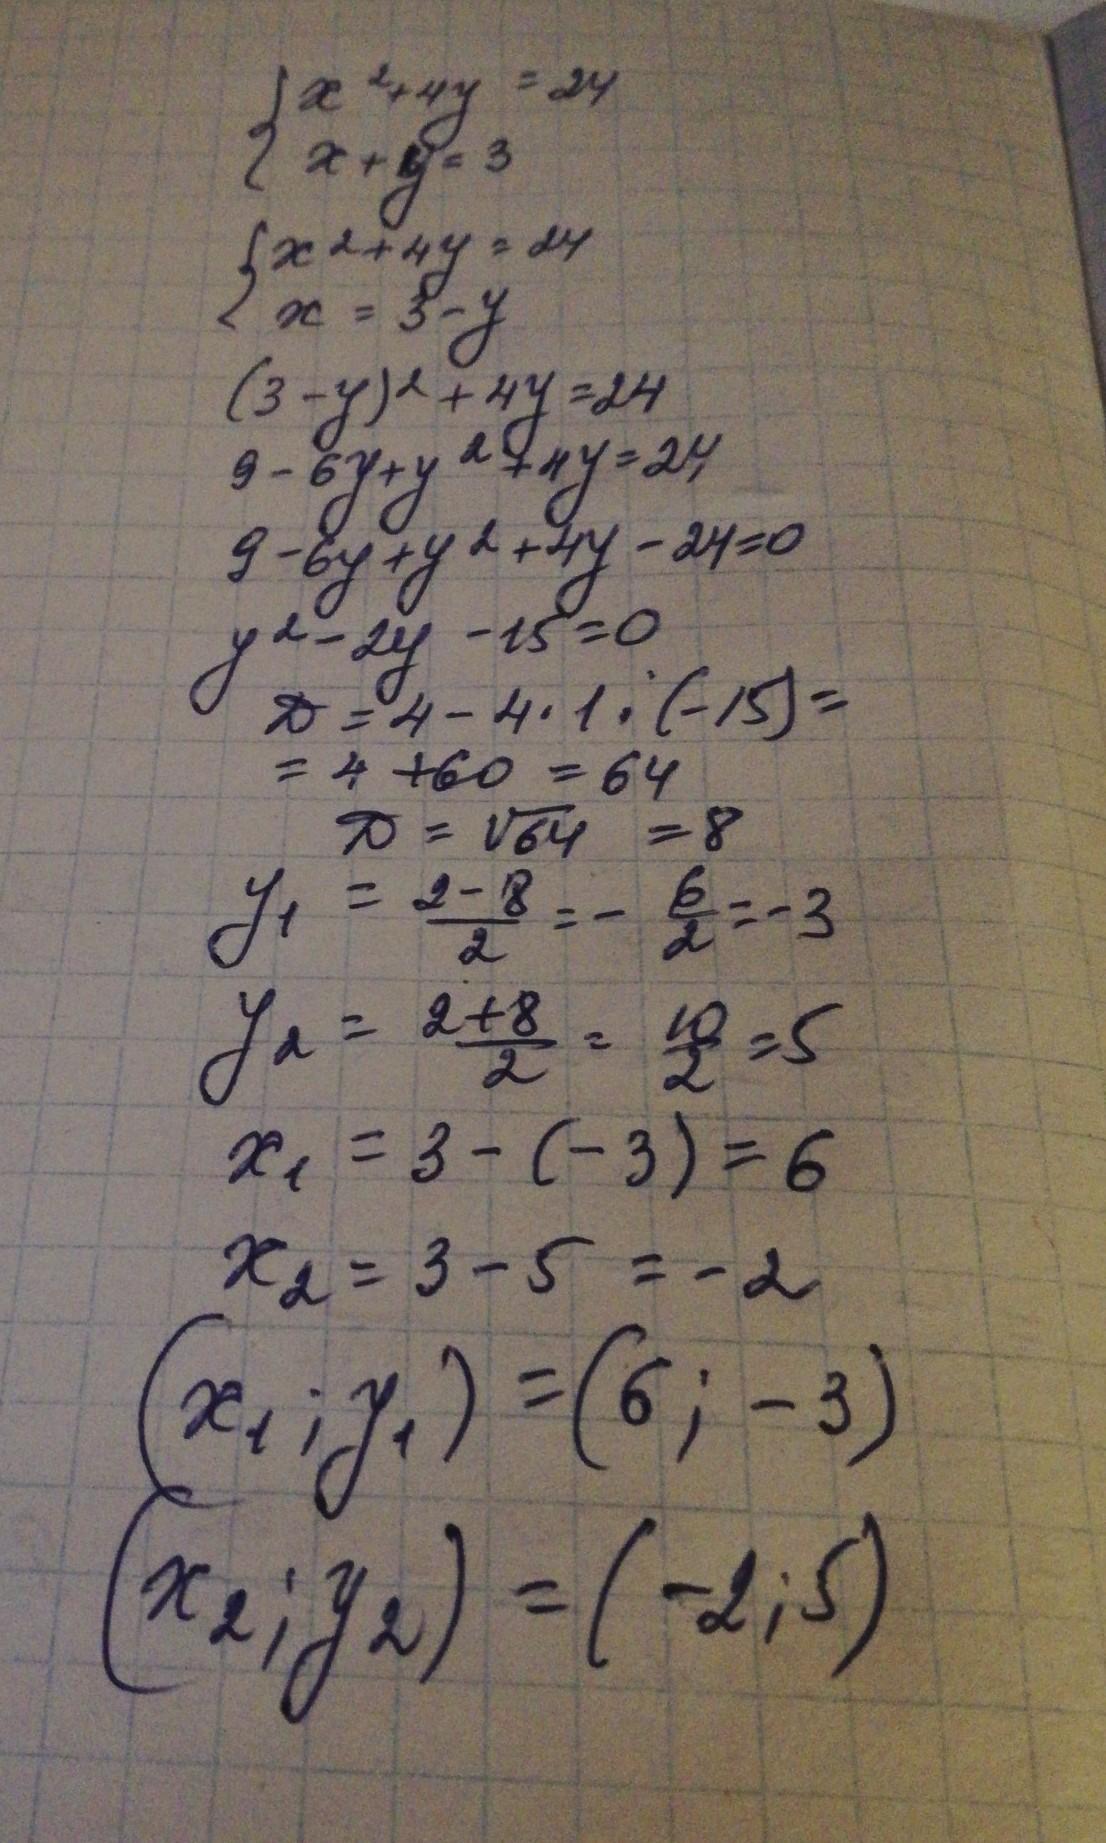 { x² + 4y = 24
x + y = 3
{ x² + 4y = 24
x = 3 - y
(3 - y)² + 4y = 24
9 - 6y + y² + 4y = 24
9 - 6y + y² + 4y - 24 = 0
y² - 2y - 15 = 0
D = 4 - 4 · 1 · (-15) =
= 4 + 60 = 64
D = √64 = 8
y₁ = (2 - 8)/2 = - 6/2 = -3
y₂ = (2 + 8)/2 = 10/2 = 5
x₁ = 3 - (-3) = 6
x₂ = 3 - 5 = -2
(x₁; y₁) = (6; -3)
(x₂; y₂) = (-2; 5)